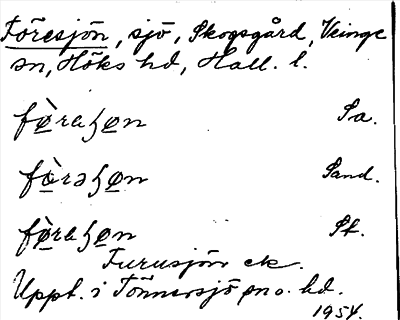 Föresjön, sjö, Skogsgård, Veinge
sn, Höks hd, Hall. l.
fø̀reɧøn Sa.
fø̀rəɧøn Sand.
fø̀reɧøn St.
Furusjön ek.
Uppt. i Tönnersjö sn o. hd.
1954.